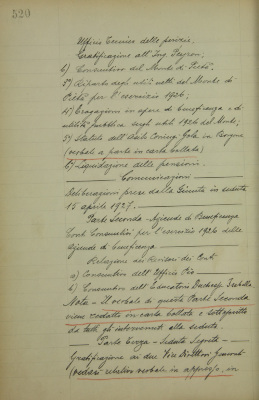 520
Ufficio Tecnico delle perizie.
Gratificazione all'Ing. Peyron;
b) Consuntivo del Monte di Pietà
3º) Riparto degli utili netti del Monte di
Pietà per l'esercizio 1926.
4º) Erogazioni in opere di beneficenza e di
utilità pubblica sugli utili 1926 del Monte;
5º) Statuto dell'Asilo Coniug. in
(verbale a parte in carta bollata)
6º) Liquidazione delle pensioni.
Comunicazioni
Deliberazioni prese dalla Giunta in seduta
15 aprile 1927.
Parte Seconda - Aziende di Beneficenza
Conti Consuntivi per l'esercizio 1926 delle
Aziende di beneficenza.
Relazione dei Revisori dei Conti
a) Consuntivo dell'Ufficio Pio
b) Consuntivo dell'Educatorio Duchessa Isabella
Nota - Il verbale di questa Parte Seconda
viene redatto in carta bollata e sottoscritto
da tutti gli intervenuti alla seduta.
Parte Terza - Seduta Segreta -
Gratificazione ai due Vice Direttori
(vedasi relativo verbale in appresso, in